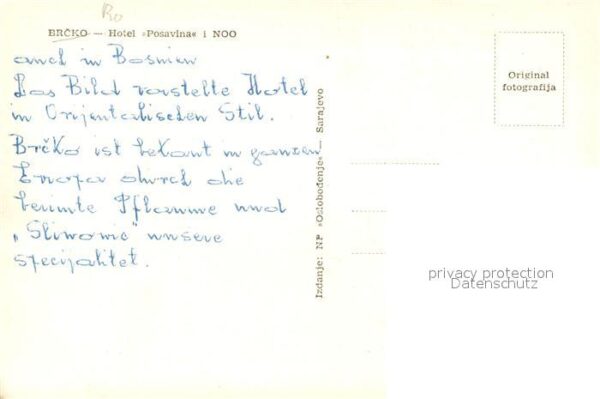 Ro
BRČKO — Hotel »Posavina« i NOO
auch in Bosnien
Das Bild vorstelte Hotel
in Orijentalischen Stil.
Brčko ist bekant in ganzen
Evropa durch die
berimte Pflaume und
„Sliwowic" unsere
specijalitet.
Izdanje: NP »Oslobođenje« — Sarajevo
Original
fotografija
privacy protection
Datenschutz